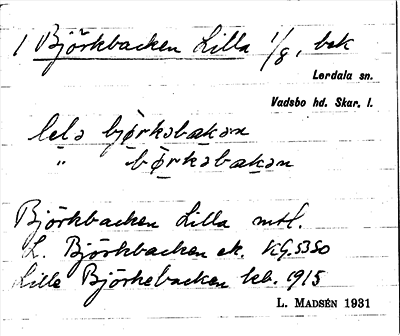 1 Björkbacken Lilla 1/8, bek
Lerdala sn.
Vadsbo hd. Skar. l.
lelə bjørkəbakən
„ børkəbakən
Björkbacken Lilla mtl.
L. Björkbacken ek. KG.5350
Lille Björkebacken kb. 1915
L. MADSÉN 1931